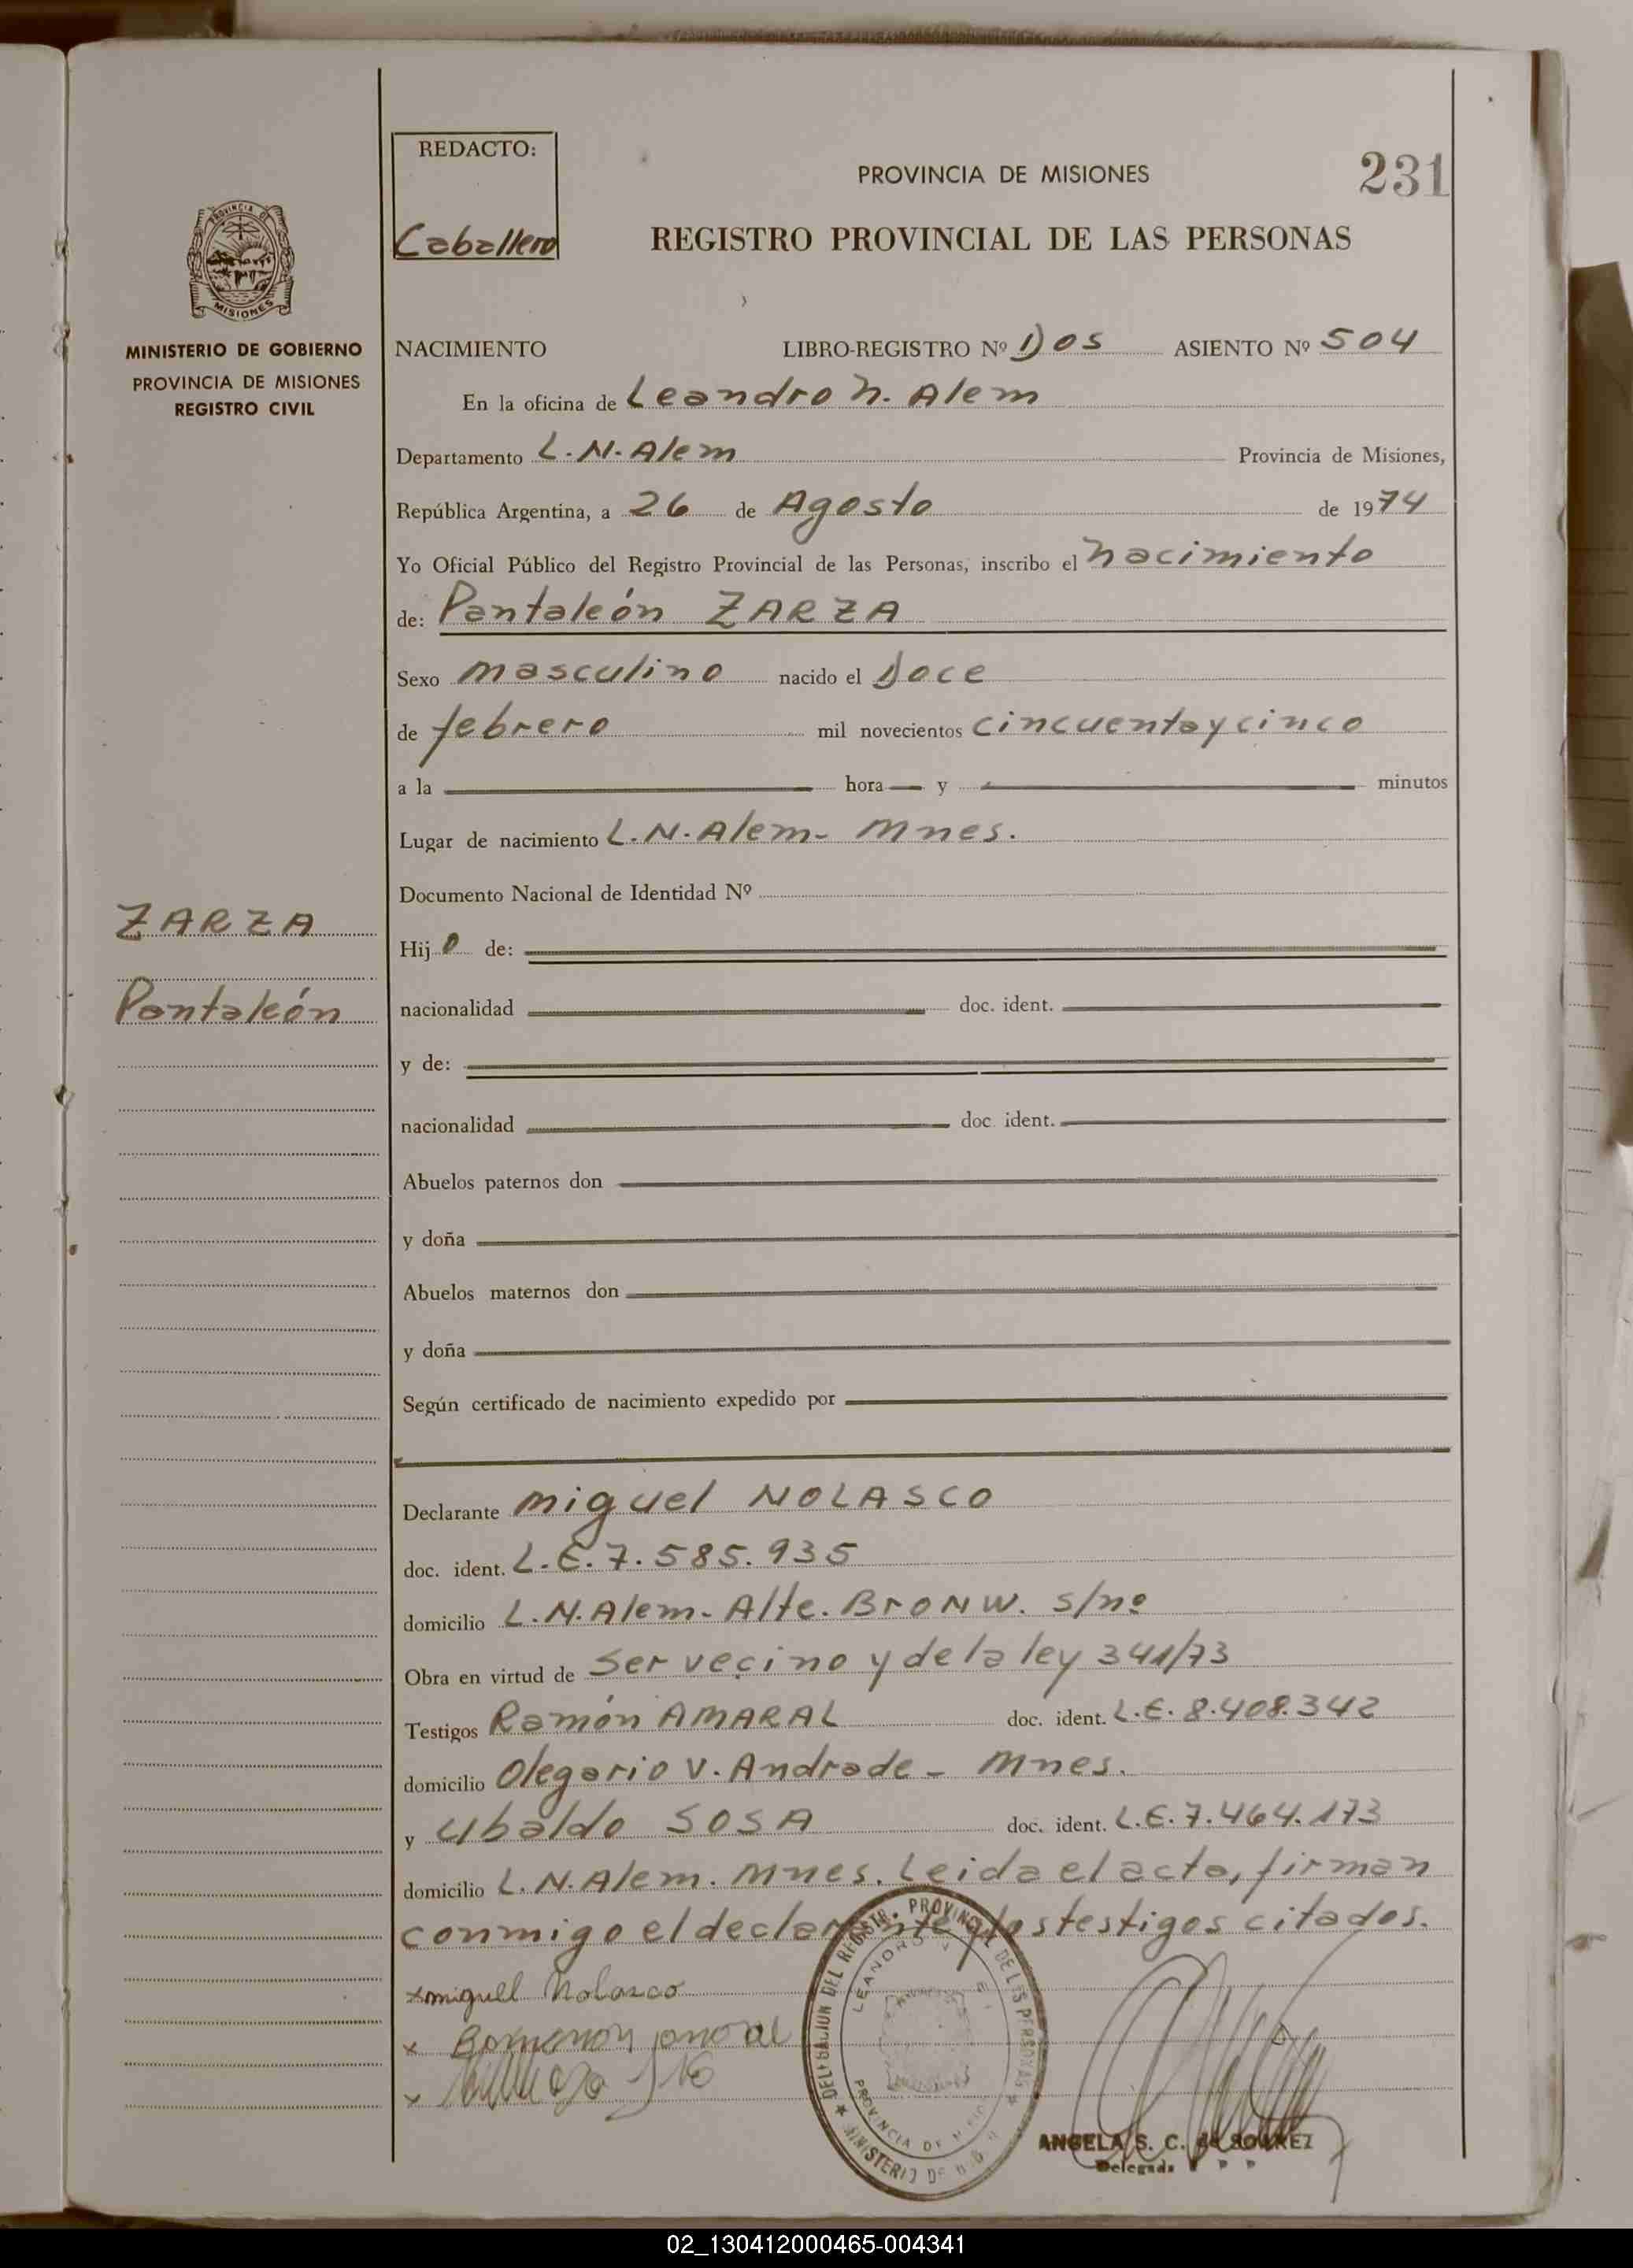 REDACTO:
Caballero
PROVINCIA DE MISIONES
231
REGISTRO PROVINCIAL DE LAS PERSONAS
PROVINCIA DE
MISIONES
MINISTERIO DE GOBIERNO
PROVINCIA DE MISIONES
REGISTRO CIVIL
NACIMIENTO LIBRO-REGISTRO Nº Dos ASIENTO Nº 504
En la oficina de Leandro N. Alem
Departamento L.N.Alem Provincia de Misiones,
República Argentina, a 26 de Agosto de 1974
Yo Oficial Público del Registro Provincial de las Personas, inscribo el nacimiento
de: Pantaleón ZARZA
Sexo masculino nacido el Doce
de febrero mil novecientos cincuenta y cinco
a la hora y minutos
Lugar de nacimiento L.N.Alem- Mnes.
Documento Nacional de Identidad Nº
ZARZA
Pantaleón
Hijo de:
nacionalidad doc. ident.
y de:
nacionalidad doc. ident.
Abuelos paternos don
y doña
Abuelos maternos don
y doña
Según certificado de nacimiento expedido por
Declarante Miguel NOLASCO
doc. ident. L.E. 7.585.935
domicilio L.N.Alem- Alte. BroNW. s/nº
Obra en virtud de Ser vecino y de la ley 341/73
Testigos Ramón AMARAL doc. ident. L.E. 8.408.342
domicilio Olegario V. Andrade - Mnes.
y Ubaldo SOSA doc. ident. L.E. 7.464.173
domicilio L.N.Alem. Mnes. Leida el acta, firman
conmigo el declarante y los testigos citados.
x miguel Nolasco
x
x
DELEGACION DEL REGISTR. PROVINCIAL DE LAS PERSONAS
LEANDRO N
PROVINCIA DE
MINISTERIO DE
ANGELA S. C. de SOAREZ
Delegada
02_130412000465-004341